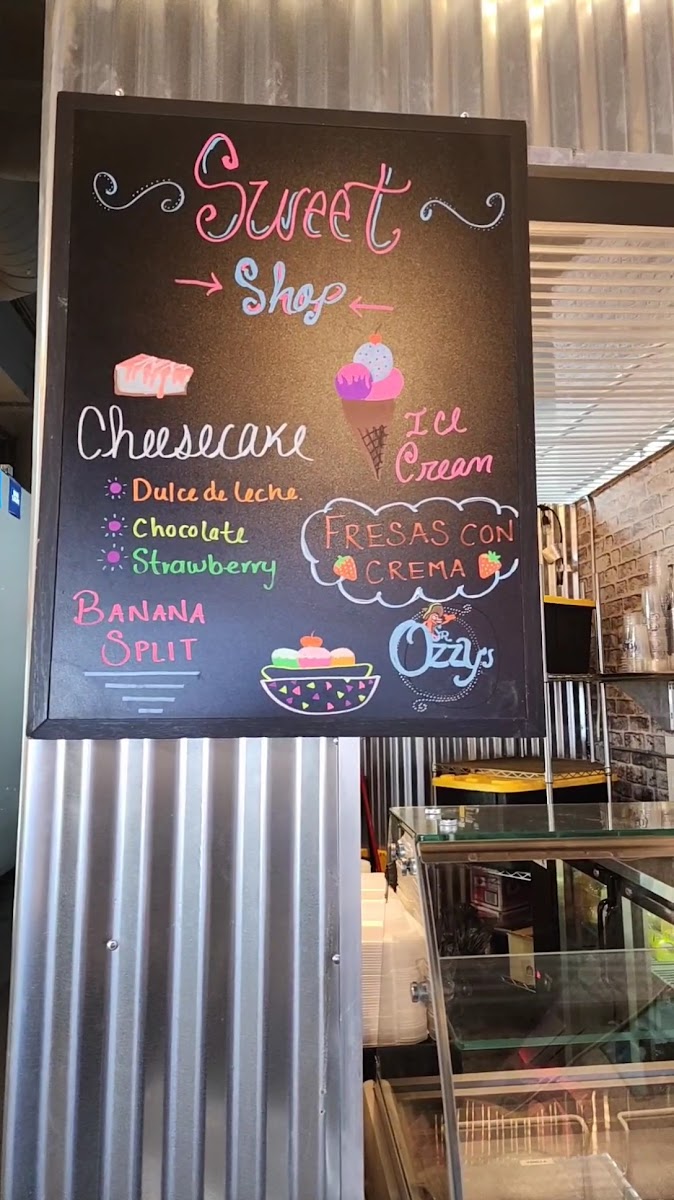 Sweet
Shop
Cheesecake
Dulce de leche.
Chocolate
Strawberry
Ice
Cream
FRESAS CON
CREMA
BANANA
SPLIT
SR.
Ozzy's